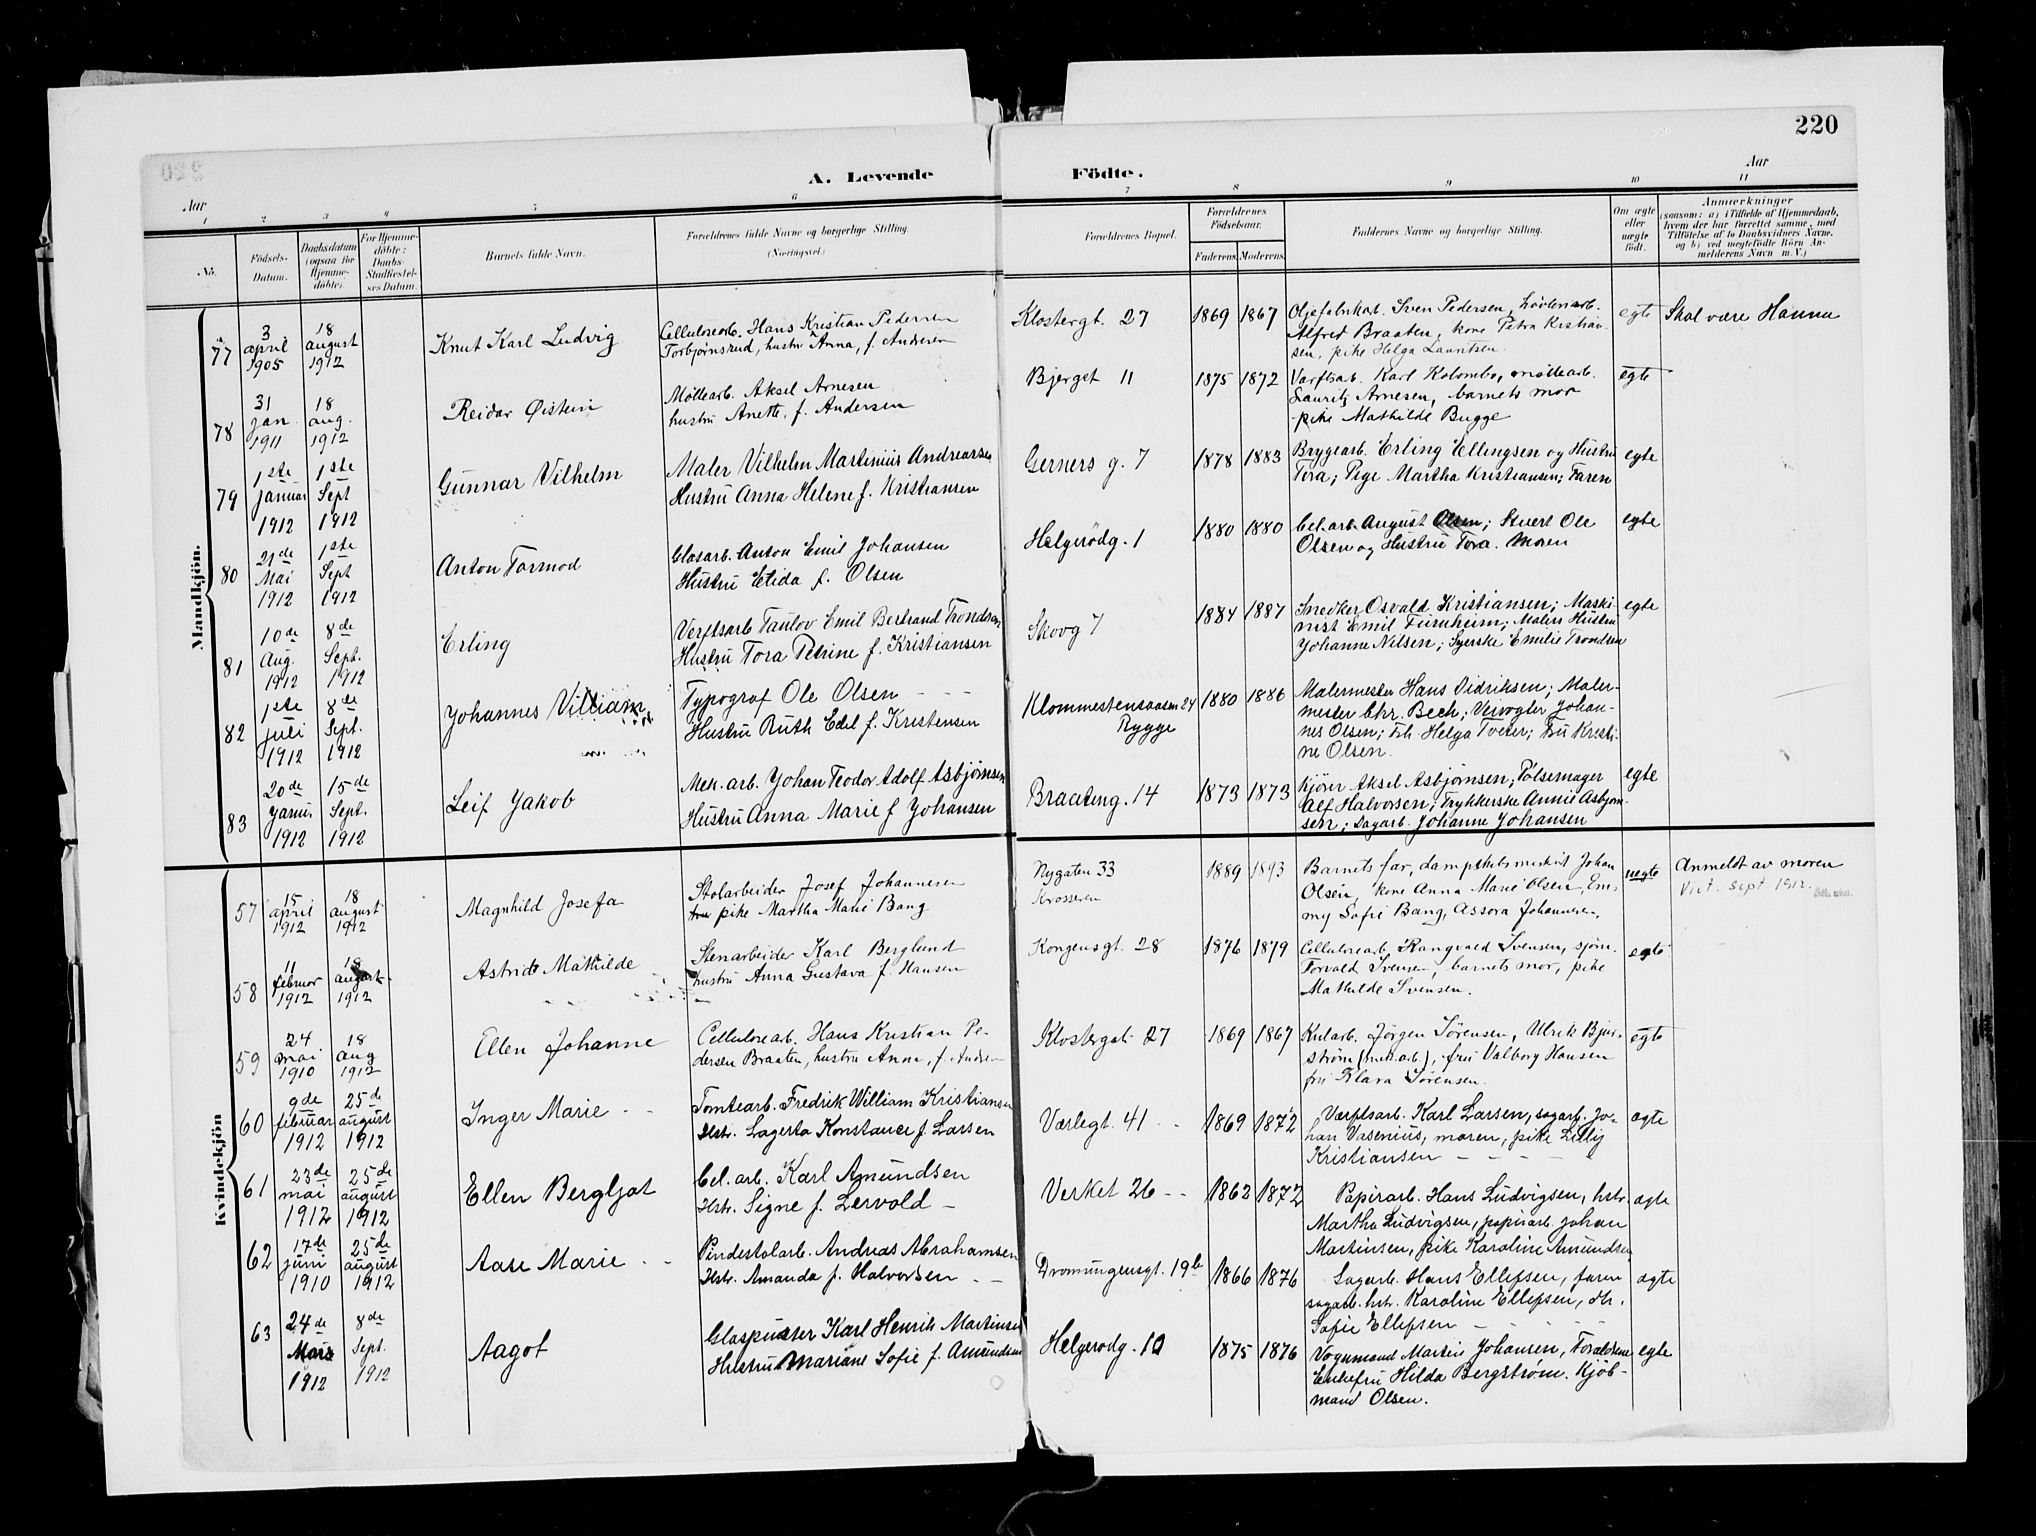 220
A. Levende Födte.
Aar
Aar
1 2 3 4 5 6 7 8 9 10 11
No.
Födsels-Datum.
Daabsdatum (ogsaa for Hjemme-döbte).
For Hjemme-döbte: Daabs-Stadfæstel-ses Datum.
Barnets fulde Navn.
Forældrenes fulde Navne og borgerlige Stilling. (Næringsvei.)
Forældrenes Bopæl.
Forældrenes Födselsaar.
Faderens. Moderens.
Faddernes Navne og borgerlige Stilling.
Om ægte eller uægte födt.
Anmærkninger
(saasom: a) i Tilfælde af Hjemmedaab,
hvem der har forrettet samme, med
Tilföielse af to Daabsvidners Navne.
og b) ved uægtefödte Börn An-
melderens Navn m. V.)
Mandkjön.
77
3 april 1905
18 august 1912
Knut Karl Ludvig
Cellulosearb. Hans Kristian Pedersen
Torbjørnsrud, hustru Anna, f. Andersen
Klostergt. 27
1869 1867
Oljefabrikat. Sven Pedersen,
Alfred Braaten, kone Petra Kristian-
sen, pike Helga Lauritsen.
egte
Skal være Hanna
78
31 jan. 1911
18 aug. 1912
Reidar Øistein
Møllearb. Aksel Arnesen
hustru Anette, f. Andersen
Bjerget 11
1875 1872
Værftsarb. Karl Kolombo, møllearb.
Lauritz Arnesen, barnets mor
pike Mathilde Bugge
egte
79
1ste Januar 1912
1ste Sept 1912
Gunnar Vilhelm
Maler Vilhelm Martinius Andreassen
Hustru Anna Helene f. Kristiansen
Gerners g. 7
1878 1883
Brygearb. Erling Ellingsen og Hustru
Tora; Pige Martha Kristiansen; Faren
egte
80
21de Mai 1912
1ste Sept 1912
Anton Tormod
Glasarb. Anton Emil Johansen
Hustru Elida f. Olsen
Helgerödg. 1
1880 1880
Cel. arb. August Olsen; Stuert Ole
Olsen og Hustru Tora. Moren
egte
81
10de Aug. 1912
8de Sept. 1912
Erling
Verftsarb Taulov Emil Bertrand Trondsen
Hustru Tora Petrine f. Kristiansen
Skovg 7
1884 1887
Snedker Osvald Kristiansen; Maski-
nist Emil Furnheim; Malers Hustru
Johanne Nilsen; Syerske Emilie Trondsen
egte
82
1ste juli 1912
8de Sept. 1912
Johannes Villiam
Typograf Ole Olsen - - -
Hustru Ruth Edel f. Kristensen
Klommestensaasen 24
Rygge
1880 1886
Malermester Hans Didriksen; Maler-
mester Chr. Bech; Johan-
nes Olsen; Frk. Helga Tveter; Fru Kristi-
ne Olsen.
83
20de Januar 1912
15de Sept. 1912
Leif Jakob
Mek. arb. Johan Teodor Adolf Asbjørnsen
Hustru Anna Marie f Johansen
Braateng. 14
1873 1873
Kjører Aksel Asbjørnsen; Pølsemager
Alf Halvorsen; Trykkerske Annie Asbjørn-
sen; Dagarb. Johanne Johansen
egte
Kvindekjön
57
15 april 1912
18 august 1912
Magnhild Josefa
Stolarbeider Josef Johannesen
pike Martha Marie Bang
Nygaten 33
Krosseren
1889 1893
Barnets far, dampskibsmaskinist Johan
Olsen, kone Anna Marie Olsen, Em-
my Sofie Bang, Assora Johannesen.
uegte
Anmeldt av moren
Vict. sept 1912.
58
11 februar 1912
18 august 1912
Astrid Mathilde
Stenarbeider Karl Berglund
hustru Anna Gustava f. Hansen
Kongensgt. 28
1876 1879
Cellulosearb. Rangvald Svensen, sjøm.
Torvald Svensen, barnets mor, pike
Mathilde Svensen.
egte
59
24 mai 1910
18 aug 1912
Ellen Johanne
Cellulosearb. Hans Kristian Pe-
dersen Braaten, hustru Anna, f. Andersen
Klostergat 27
1869 1867
Kularb. Jørgen Sørensen, Ulrik Bjur-
strøm (mek.arb), fru Valborg Hansen
fru Klara Sørensen.
egte
60
9de februar 1912
25de august 1912
Inger Marie - -
Tomtearb. Fredrik William Kristiansen
Hstr. Lagerta Konstance f. Larsen
Værlegt. 41 - -
1869 1872
Værftsarb. Karl Larsen, sagarb. Jo-
han Vasenius, moren, pike Lilly
Kristiansen - - - -
ægte
61
23de mai 1912
25de august 1912
Ellen Bergljot
Cel. arb. Karl Amundsen
Hstr. Signe f. Lervold -
Verket 26 - -
1862 1872
Papirarb. Hans Ludvigsen, hstr.
Martha Ludvigsen, papirarb. Johan
Martinsen, pike Karoline Amundsen
ægte
62
17de juni 1910
25de august 1912
Aase Marie - -
Pindestolarb. Andreas Abrahamsen
Hstr. Amanda f. Halvorsen - -
Dronningensgt. 19b
1866 1876
Sagarb. Hans Ellefsen, faren
sagarb. hstr. Karoline Ellefsen, do.
Sofie Ellefsen - - - - -
ægte
63
24de Mars 1912
8de Sept. 1912
Aagot
Glaspuster Karl Henrik Martinsen
Hustru Mariane Sofie f. Amundsen
Helgerødg. 10
1875 1876
Vognmand Martin Johansen, Forældrene
Enkefru Hilda Bergstrøm. Kjöb-
mand Olsen.
egte